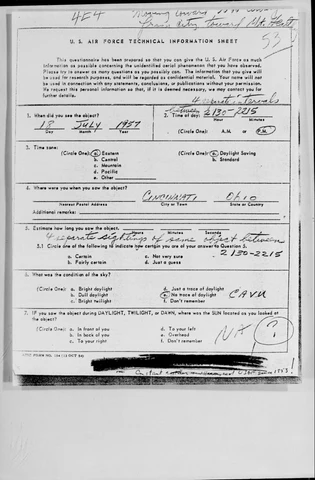 4E4
Moving
toward Mt.
53
U. S. AIR FORCE TECHNICAL INFORMATION SHEET
This questionnaire has been prepared so that you can give the U. S. Air Force as much
information as possible concerning the unidentified aerial phenomenon that you have observed.
Please try to answer as many questions as you possibly can. The information that you give will
be used for research purposes, and will be regarded as confidential material. Your name will not
be used in connection with any statements, conclusions, or publications without your permission.
We request this personal information so that, if it is deemed necessary, we may contact you for
further details.
4 intervals
between 2130-2215
1. When did you see the object?
2. Time of day:
Hour Minutes
18 July 1957
Day Month Year
(Circle One): A.M. or P.M.
3. Time zone:
(Circle One): a. Eastern
b. Central
c. Mountain
d. Pacific
e. Other
(Circle One): a. Daylight Saving
b. Standard
4. Where were you when you saw the object?
CINCINNATI OHIO
Nearest Postal Address City or Town State or Country
Additional remarks:
5. Estimate how long you saw the object.
Hours Minutes Seconds
4 separate sightings of same object between
5.1 Circle one of the following to indicate how certain you are of your answer to Question 5.
2130-2215
a. Certain c. Not very sure
b. Fairly certain d. Just a guess
6. What was the condition of the sky?
(Circle One): a. Bright daylight d. Just a trace of daylight
b. Dull daylight e. No trace of daylight CAVU
c. Bright twilight f. Don't remember
7. IF you saw the object during DAYLIGHT, TWILIGHT, or DAWN, where was the SUN located as you looked at
the object?
NA ?
(Circle One): a. In front of you d. To your left
b. In back of you e. Overhead
c. To your right f. Don't remember